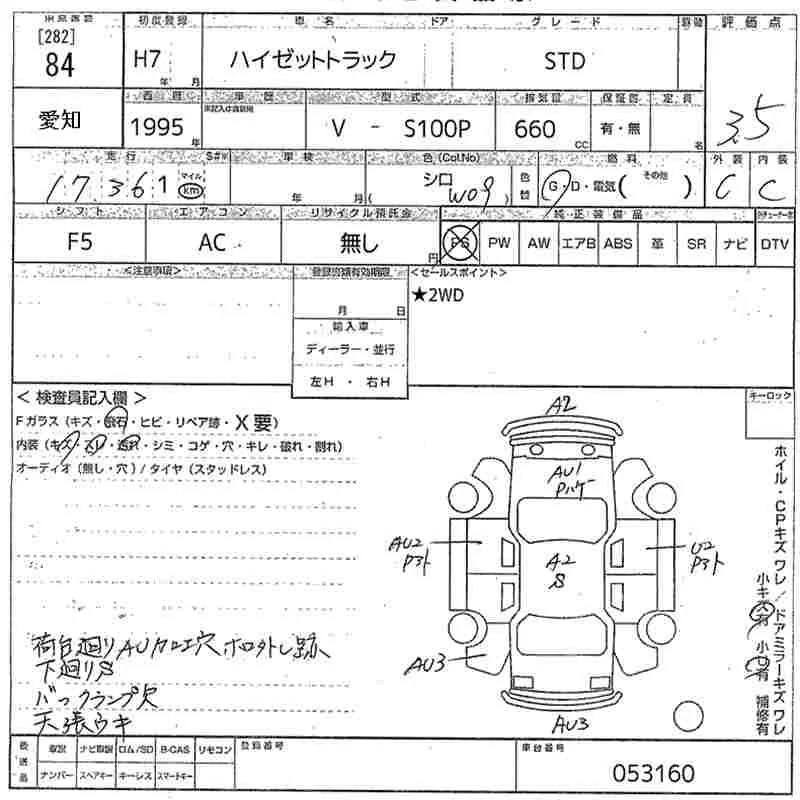 初度登録 車名 ドア グレード 評価点
[282]
84
H7 年 月
ハイゼットトラック
STD
3.5
愛知
西暦 車歴 型式 排気量 保証書 定員
1995 年
V - S100P
660 CC
有・無
名
走行 車検 色(Col.No) 燃料 外装 内装
17361 マイル km
年 月
シロ W09
色替
G・D・電気( その他 )
C C
シフト エアコン リサイクル預託金 純正装備品
F5 AC 無し 円
PS PW AW エアB ABS 革 SR ナビ DTV
<注意事項>
登録書類有効期限
月 日
輸入車
ディーラー・並行
左H ・ 右H
<セールスポイント>
★2WD
キーロック
< 検査員記入欄 >
Fガラス(キズ・飛石・ヒビ・リペア跡・X要)
内装(キズ・スレ・汚れ・シミ・コゲ・穴・キレ・破れ・割れ)
オーディオ(無し・穴)/タイヤ(スタッドレス)
A2
AU1
Pハゲ
AU2
Pヌト
A2
S
U2
Pヌト
AU3
AU3
ホイル・CPキズ ワレ/ドアミラーキズ ワレ
小キズ有 小凹有 補修有
荷台廻りAUカロエ穴 ホロ外し跡
下廻りS
バックランプ欠
天張ウキ
後送品
取説 ナビ取説 ロム/SD B-CAS リモコン
ナンバー スペアキー キーレス スマートキー
登録番号
車台番号
053160